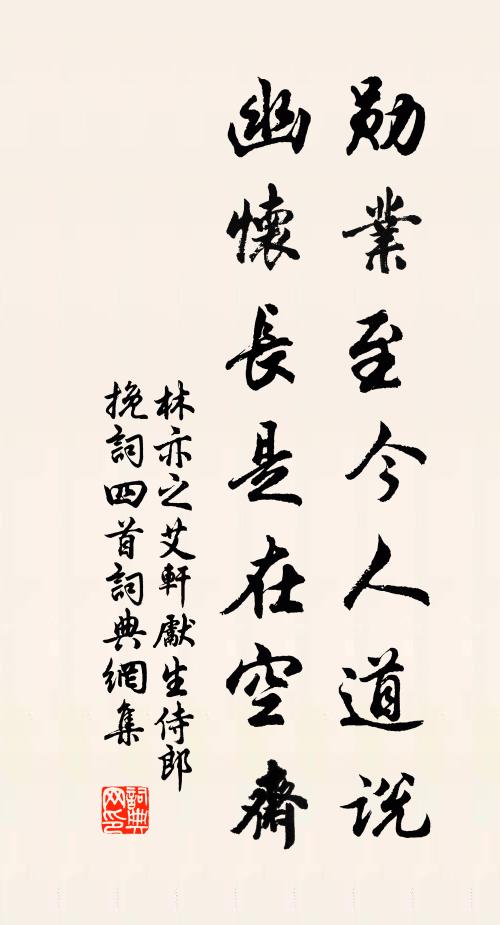 勛業至今人道說
幽懷長是在空齋
林亦之艾軒獻生侍郎
挽詞四首詞典網集
詞典网印